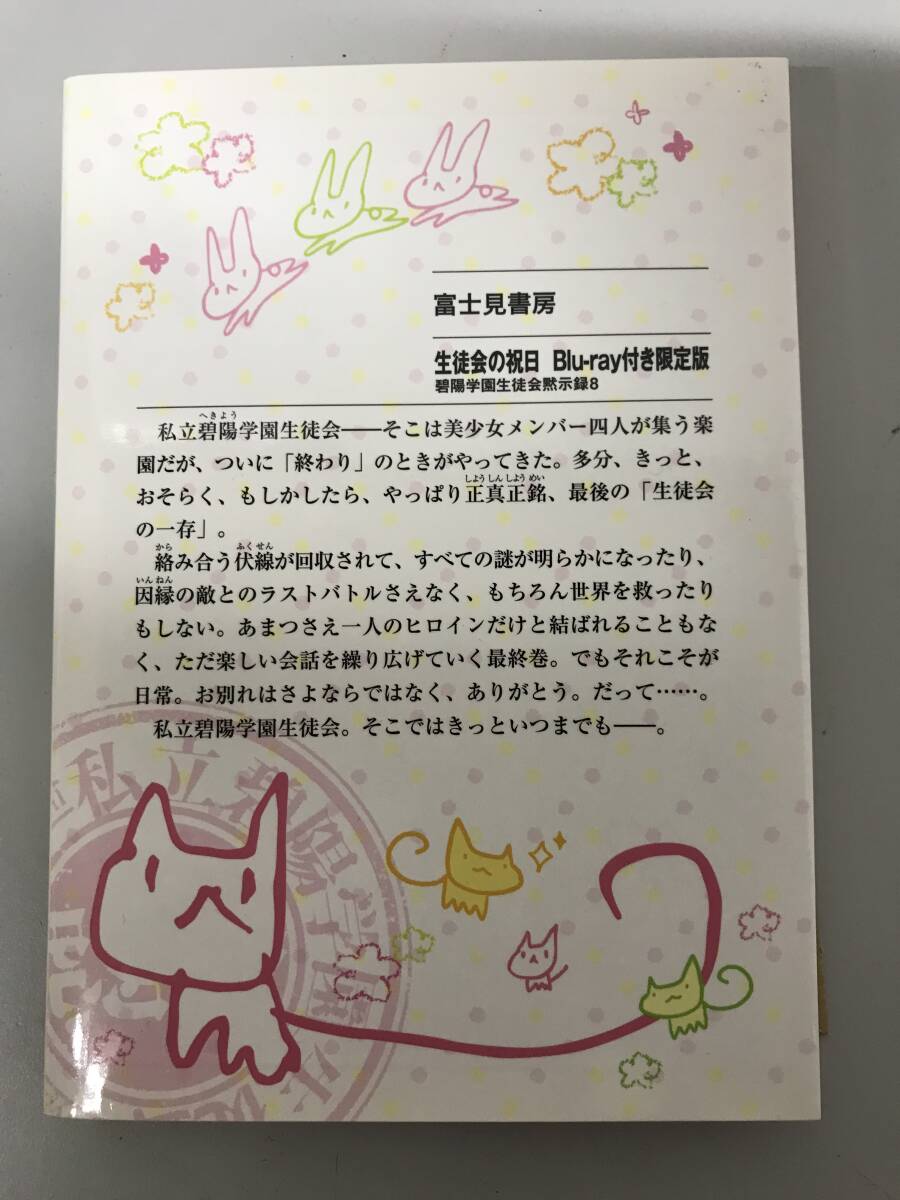 富士見書房
生徒会の祝日 Blu-ray付き限定版
碧陽学園生徒会黙示録8
へきよう
私立碧陽学園生徒会――そこは美少女メンバー四人が集う楽
園だが、ついに「終わり」のときがやってきた。多分、きっと、
しょうしんしょうめい
おそらく、もしかしたら、やっぱり正真正銘、最後の「生徒会
の一存」。
から ふくせん
絡み合う伏線が回収されて、すべての謎が明らかになったり、
いんねん
因縁の敵とのラストバトルさえなく、もちろん世界を救ったり
もしない。あまつさえ一人のヒロインだけと結ばれることもな
く、ただ楽しい会話を繰り広げていく最終巻。でもそれこそが
日常。お別れはさよならではなく、ありがとう。だって……。
私立碧陽学園生徒会。そこではきっといつまでも――。
私立碧陽学園